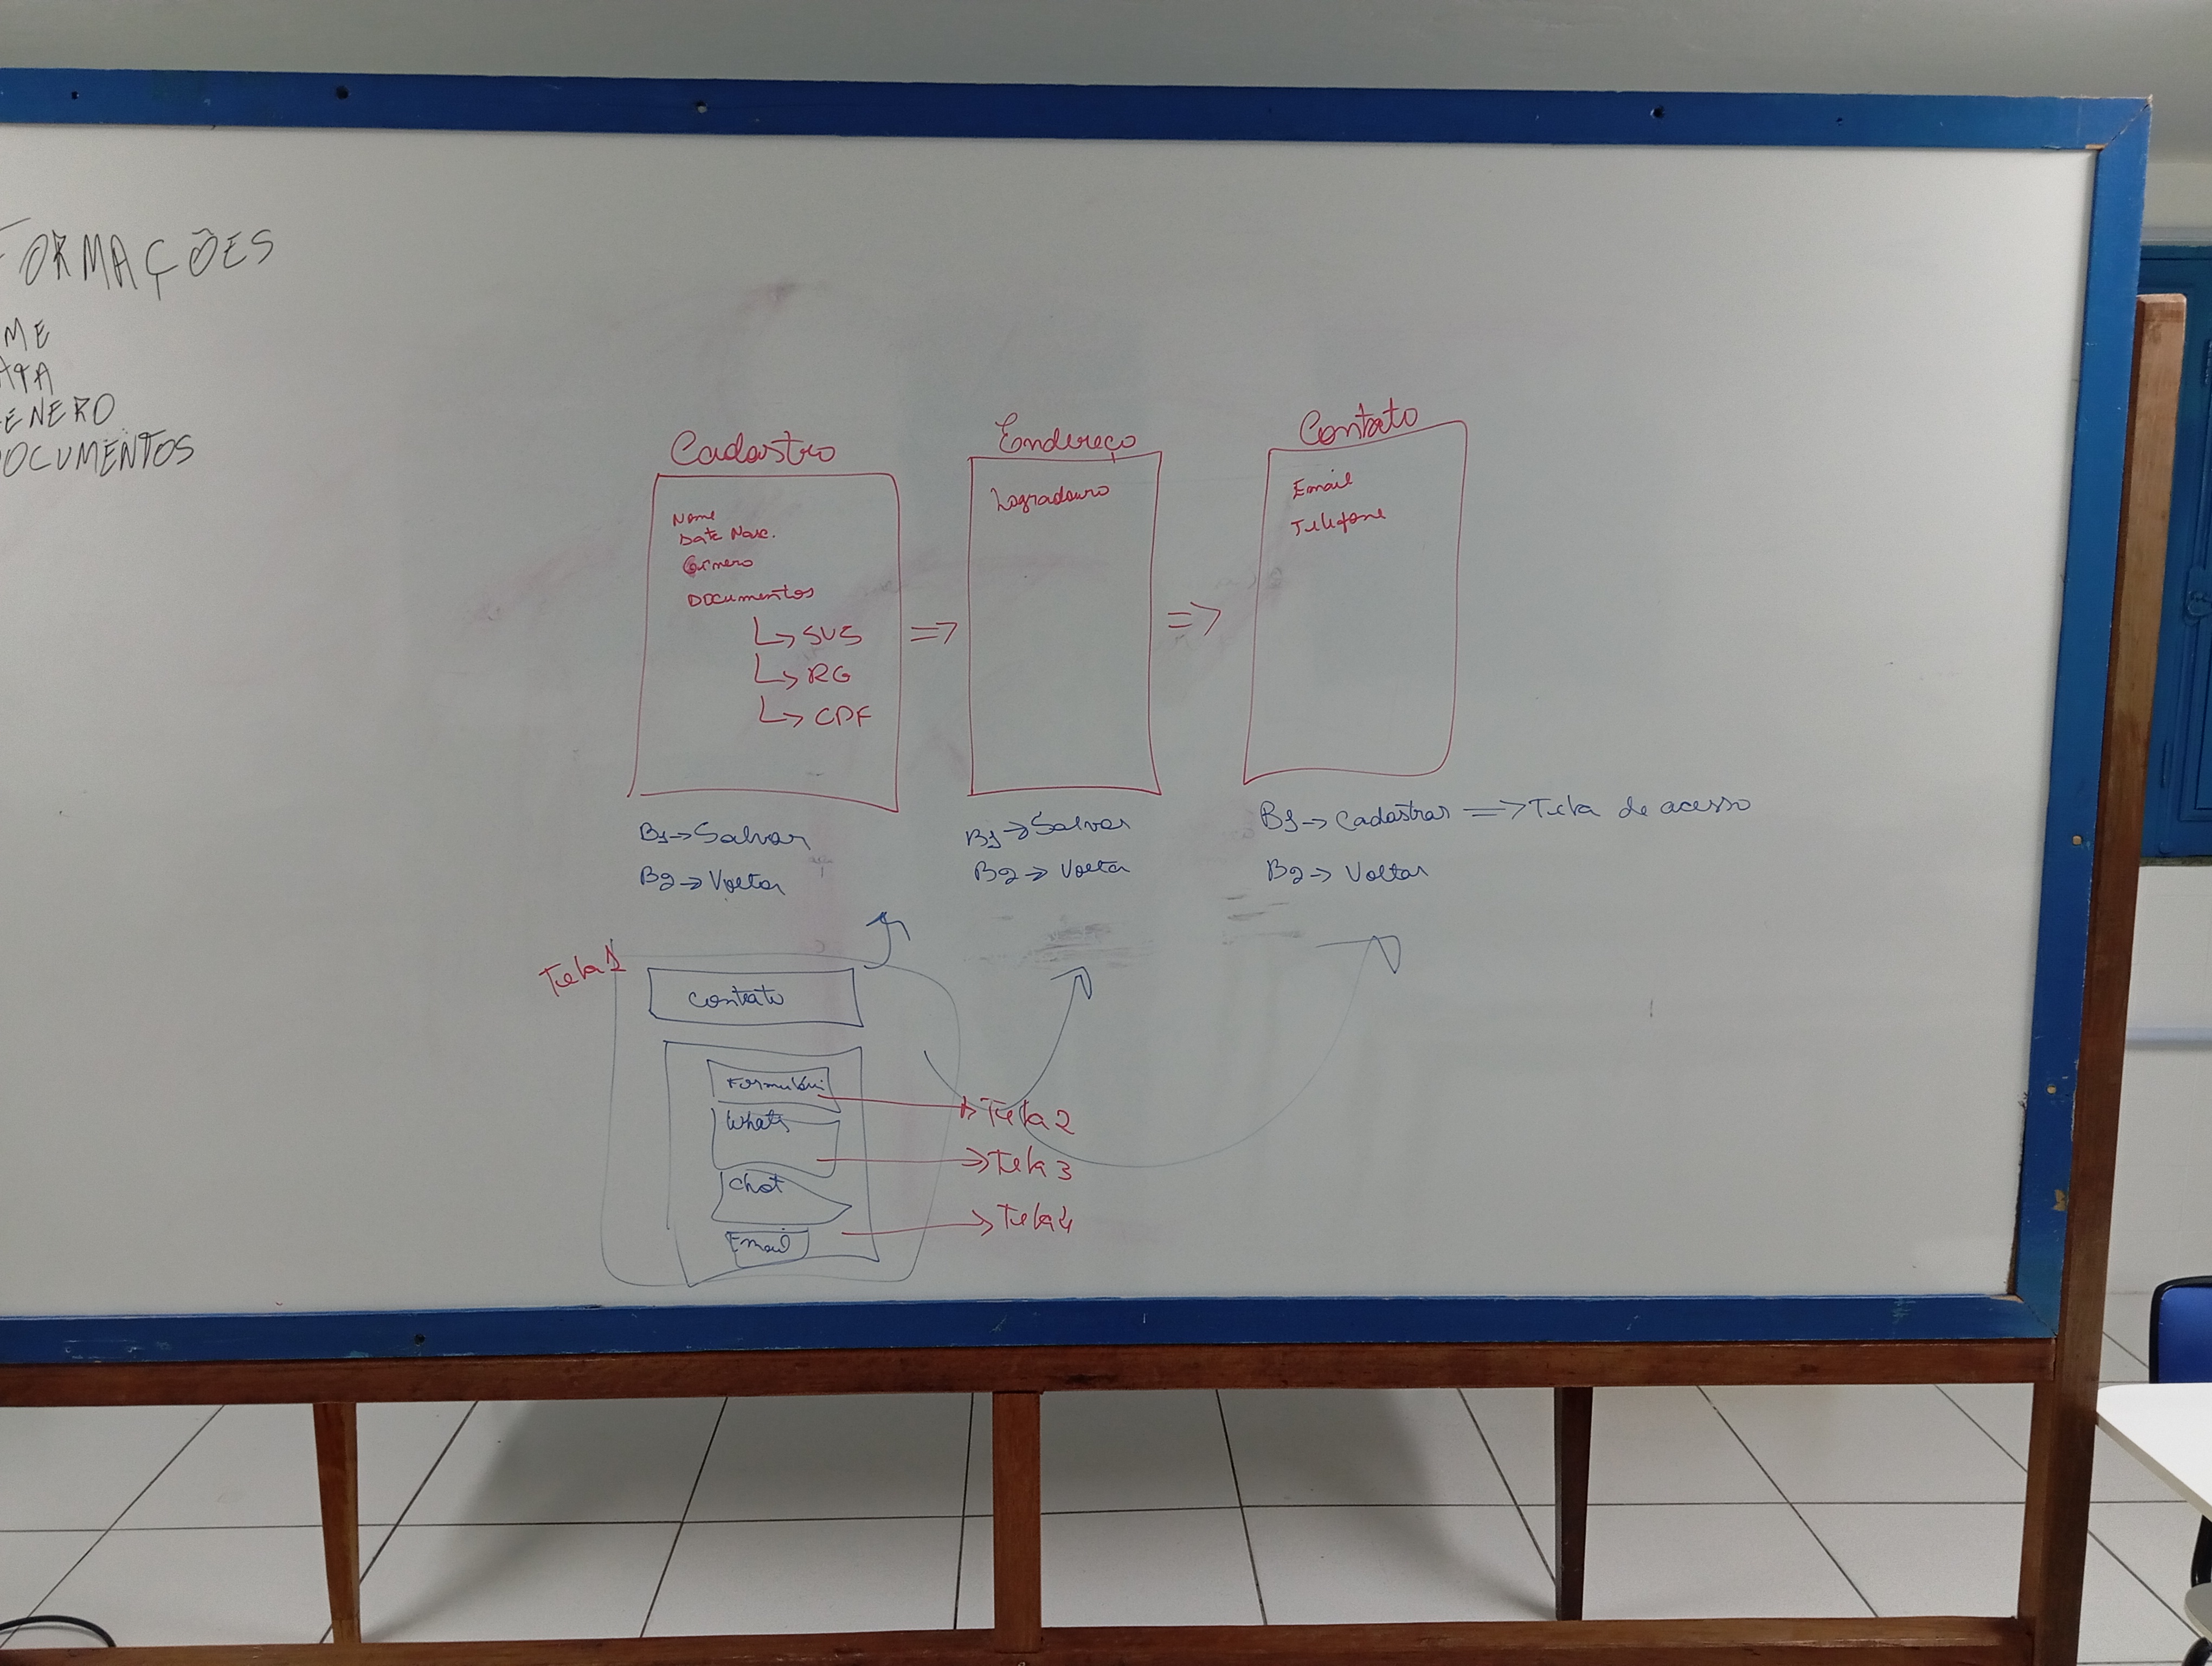 FORMAÇÕES
ME
ATA
ENERO
OCUMENTOS
Cadastro
Nome
Data Nasc.
Gênero
Documentos
↳ SUS
↳ RG
↳ CPF
B1→Salvar
B2→Voltar
⇒
Endereço
Logradouro
B1→Salvar
B2→Voltar
⇒
Contato
Email
Telefone
B1→Cadastrar ⇒ Tela de acesso
B2→Voltar
Tela 1
Contato
Formulári
Whats
Chat
Email
Tela 2
Tela 3
Tela 4